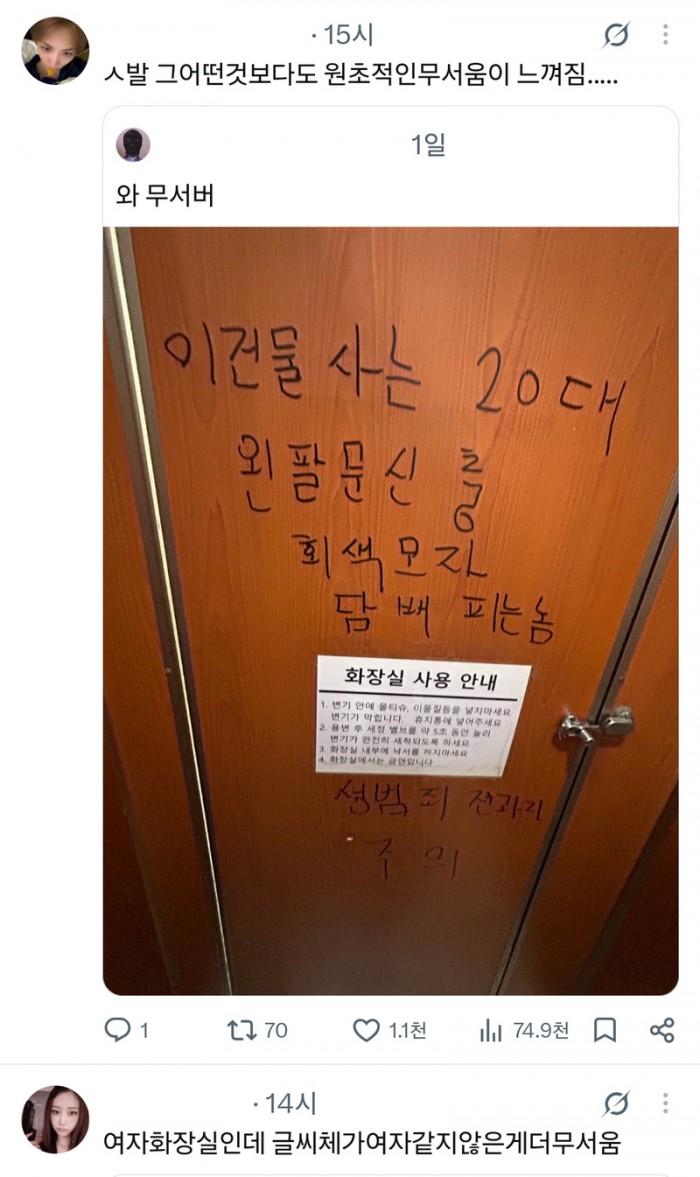 · 15시
ㅅ발 그어떤것보다도 원초적인무서움이 느껴짐.....
1일
와 무서버
이건물 사는 20대
왼팔문신 흉
회색모자
담배 피는놈
화장실 사용 안내
1. 변기 안에 물티슈, 이물질등을 넣지마세요
변기가 막힙니다. 휴지통에 넣어주세요
2. 용변 후 세정 밸브를 약 5초 동안 눌러
변기가 완전히 세척되도록 하세요
3. 화장실 내부에 낙서를 하지마세요
4. 화장실에서는 금연입니다
성범죄 전과자
주의
1
70
1.1천
74.9천
· 14시
여자화장실인데 글씨체가여자같지않은게더무서움